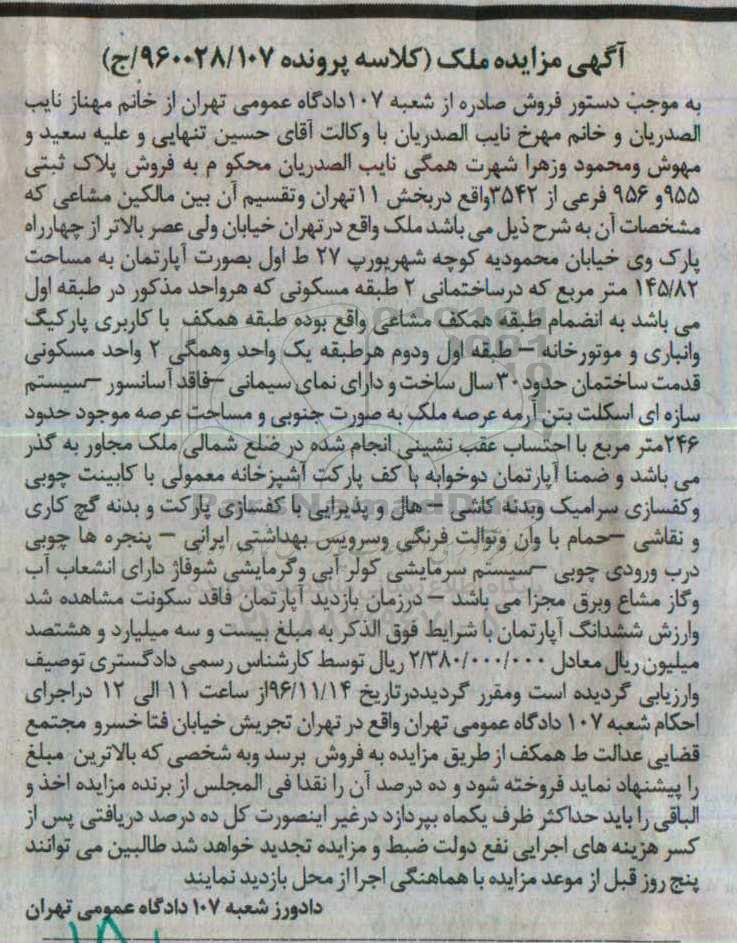 آگهی مزایده ملک (کلاسه پرونده ۹۶۰۰۲۸/۱۰۷/ج)
به موجب دستور فروش صادره از شعبه ۱۰۷دادگاه عمومی تهران از خانم مهناز نایب
الصدریان و خانم مهرخ نایب الصدریان با وکالت آقای حسین تنهایی و علیه سعید و
مهوش ومحمود وزهرا شهرت همگی نایب الصدریان محکو م به فروش پلاک ثبتی
۹۵۵و ۹۵۶ فرعی از ۳۵۴۲واقع دربخش ۱۱تهران وتقسیم آن بین مالکین مشاعی که
مشخصات آن به شرح ذیل می باشد ملک واقع درتهران خیابان ولی عصر بالاتر از چهارراه
پارک وی خیابان محمودیه کوچه شهریورپ ۲۷ ط اول بصورت آپارتمان به مساحت
۱۴۵/۸۲ متر مربع که درساختمانی ۲ طبقه مسکونی که هرواحد مذکور در طبقه اول
می باشد به انضمام طبقه همکف مشاعی واقع بوده طبقه همکف با کاربری پارکیگ
وانباری و موتورخانه – طبقه اول ودوم هرطبقه یک واحد وهمگی ۲ واحد مسکونی
قدمت ساختمان حدود۳۰ سال ساخت و دارای نمای سیمانی –فاقد آسانسور –سیستم
سازه ای اسکلت بتن آرمه عرصه ملک به صورت جنوبی و مساحت عرصه موجود حدود
۲۴۶متر مربع با احتساب عقب نشینی انجام شده در ضلع شمالی ملک مجاور به گذر
می باشد و ضمنا آپارتمان دوخوابه با کف پارکت آشپزخانه معمولی با کابینت چوبی
وکفسازی سرامیک وبدنه کاشی – هال و پذیرایی با کفسازی پارکت و بدنه گچ کاری
و نقاشی –حمام با وان وتوالت فرنگی وسرویس بهداشتی ایرانی – پنجره ها چوبی
درب ورودی چوبی –سیستم سرمایشی کولر آبی وگرمایشی شوفاژ دارای انشعاب آب
وگاز مشاع وبرق مجزا می باشد – درزمان بازدید آپارتمان فاقد سکونت مشاهده شد
وارزش ششدانگ آپارتمان با شرایط فوق الذکر به مبلغ بیست و سه میلیارد و هشتصد
میلیون ریال معادل ۲/۳۸۰/۰۰۰/۰۰۰ ریال توسط کارشناس رسمی دادگستری توصیف
وارزیابی گردیده است ومقرر گردیددرتاریخ ۹۶/۱۱/۱۴از ساعت ۱۱ الی ۱۲ دراجرای
احکام شعبه ۱۰۷ دادگاه عمومی تهران واقع در تهران تجریش خیابان فنا خسرو مجتمع
قضایی عدالت ط همکف از طریق مزایده به فروش برسد وبه شخصی که بالاترین مبلغ
را پیشنهاد نماید فروخته شود و ده درصد آن را نقدا فی المجلس از برنده مزایده اخذ و
الباقی را باید حداکثر ظرف یکماه بپردازد درغیر اینصورت کل ده درصد دریافتی پس از
کسر هزینه های اجرایی نفع دولت ضبط و مزایده تجدید خواهد شد طالبین می توانند
پنج روز قبل از موعد مزایده با هماهنگی اجرا از محل بازدید نمایند
دادورز شعبه ۱۰۷ دادگاه عمومی تهران